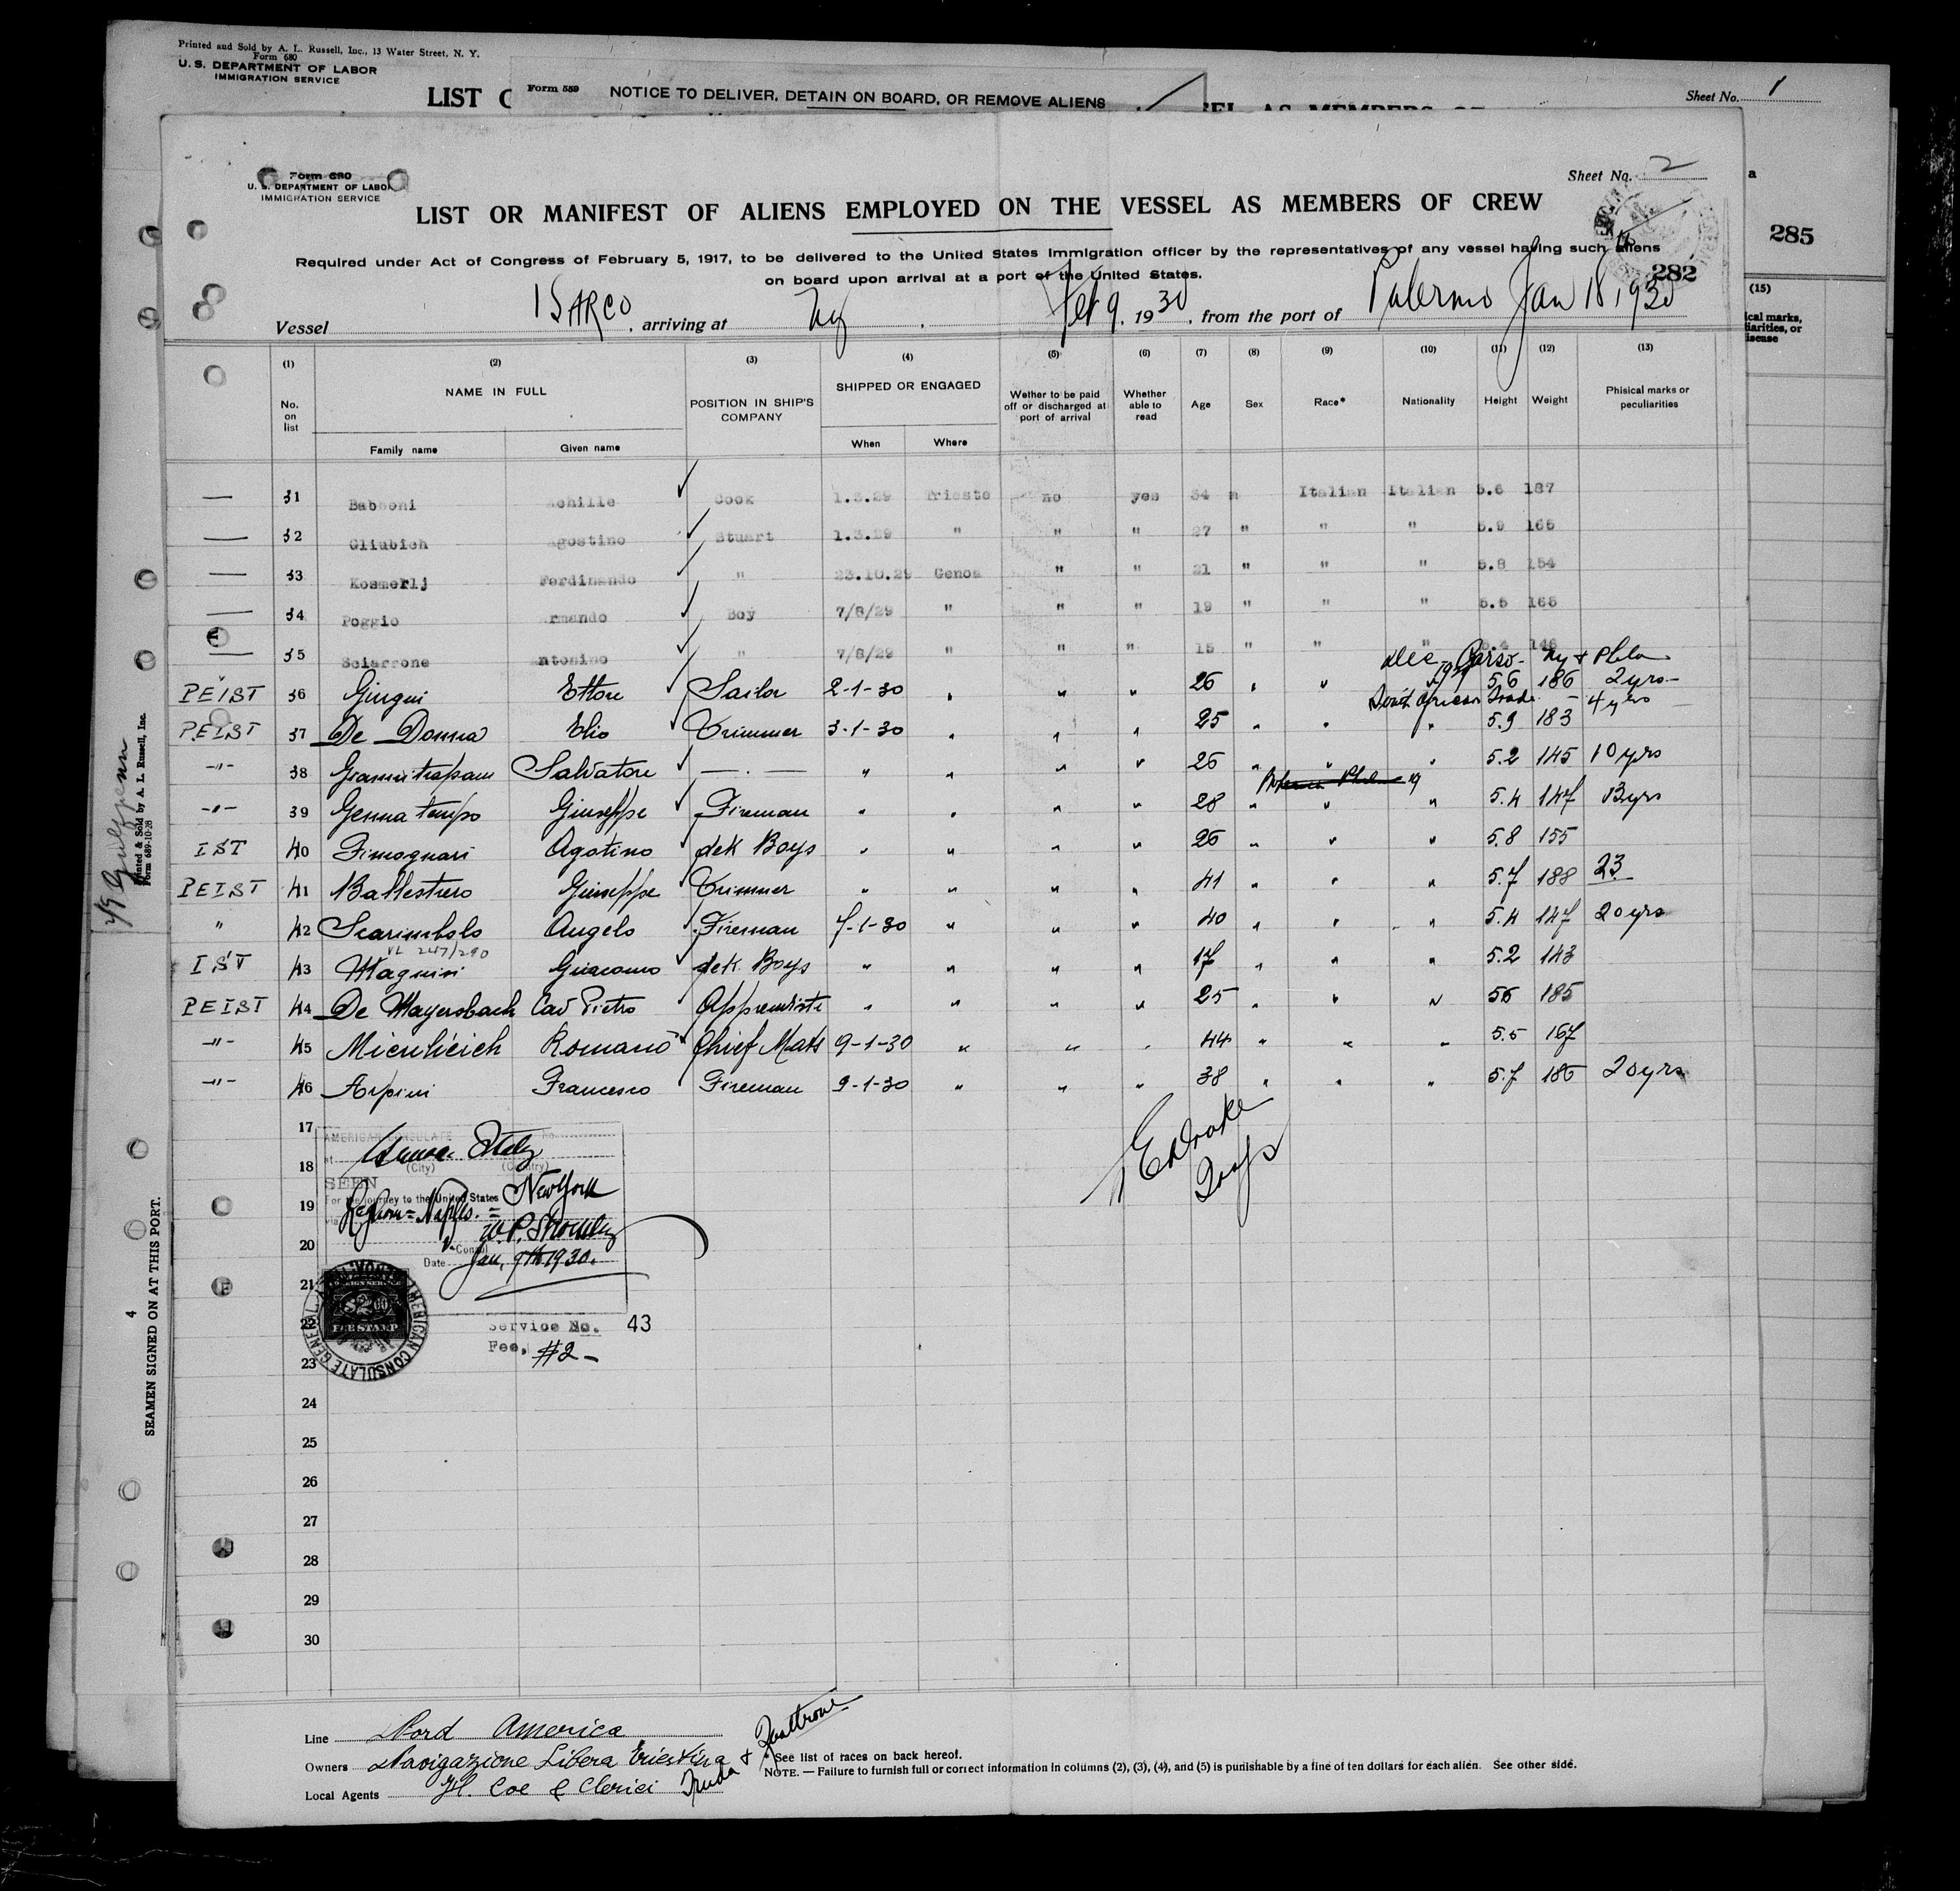 Printed and Sold by A. L. Russell, Inc., 13 Water Street, N. Y.
Form 680
U. S. DEPARTMENT OF LABOR
IMMIGRATION SERVICE
LIST O
Form 559 NOTICE TO DELIVER, DETAIN ON BOARD, OR REMOVE ALIENS
SEL AS MEMBERS OF
Sheet No. 1
Form 680
U. S. DEPARTMENT OF LABOR
IMMIGRATION SERVICE
Sheet No. 2
LIST OR MANIFEST OF ALIENS EMPLOYED ON THE VESSEL AS MEMBERS OF CREW
285
Required under Act of Congress of February 5, 1917, to be delivered to the United States Immigration officer by the representatives of any vessel having such aliens
on board upon arrival at a port of the United States.
282
Vessel ISARCO, arriving at Ny. Feb 9. 1930, from the port of Palermo Jan 18, 1930
(15)
ical marks,
liarities, or
isease
(1) (2) (3) (4) (5) (6) (7) (8) (9) (10) (11) (12) (13)
No. on list
NAME IN FULL
Family name
Given name
POSITION IN SHIP'S COMPANY
SHIPPED OR ENGAGED
When
Where
Wether to be paid off or discharged at port of arrival
Whether able to read
Age
Sex
Race*
Nationality
Height
Weight
Phisical marks or peculiarities
— 31 Babboni Achille Cook 1.3.29 Trieste no yes 34 m Italian Italian 5.6 187
— 32 Gliubich Agostino Stuart 1.3.29 " " " 27 " " " 5.9 165
— 33 Kosmerlj Ferdinando " 23.10.29 Genoa " " 21 " " " 5.8 154
— 34 Poggio Armando Boy 7/8/29 " " " 19 " " " 5.5 165
— 35 Sciarrone Antonino " 7/8/29 " " " 15 " " " 5.4 146
Ny + Phila
PEIST 36 Ettore Sailor 2-1-30 " " " 26 " " " 5.6 186 2 yrs
South African Trade - 4 yrs
PEIST 37 De Donna Elio Trimmer 3-1-30 " " " 25 " " " 5.9 183
-"- 38 Salvatore — . — " " " " 26 " " " 5.2 145 10 yrs
-"- 39 Genna tempo Giuseppe Fireman " " " " 28 " " " 5.4 147 13 yrs
IST 40 Fimognari Agotino dek Boys " " " " 26 " " " 5.8 155
PEIST 41 Ballestrero Giuseppe Trimmer " " " " 41 " " " 5.7 188 23
" 42 Angelo Fireman 7-1-30 " " " 40 " " " 5.4 147 20 yrs
VL 247/290
IST 43 Magnini Giacomo dek Boys " " " " 17 " " " 5.2 143
PEIST 44 De Mayersbach Cav Pietro " " " " 25 " " " 56 185
-"- 45 Romano Chief Mate 9-1-30 " " " 44 " " " 5.5 167
-"- 46 Arpini Francesco Fireman 9-1-30 " " " 38 " " " 5.7 186 20 yrs
17
18
19
20
21
22
23
24
25
26
27
28
29
30
AMERICAN CONSULATE
at Genoa Italy
(City) (Country)
SEEN
For the journey to the United States New York
via Naples.
V. Consul
Date Jan, 9th 1930.
FOREIGN SERVICE
$2.00
FEE STAMP
AMERICAN CONSULATE GENERAL
Service No. 43
Fee, #2 -
E Drake
Insp
Printed & Sold by A. L. Russell, Inc.
Form 689-10-28
4
SEAMEN SIGNED ON AT THIS PORT.
Line Nord America
Owners Navigazione Libera Triestina
Local Agents H. Coe & Clerici
* See list of races on back hereof.
NOTE. — Failure to furnish full or correct information in columns (2), (3), (4), and (5) is punishable by a fine of ten dollars for each alien. See other side.